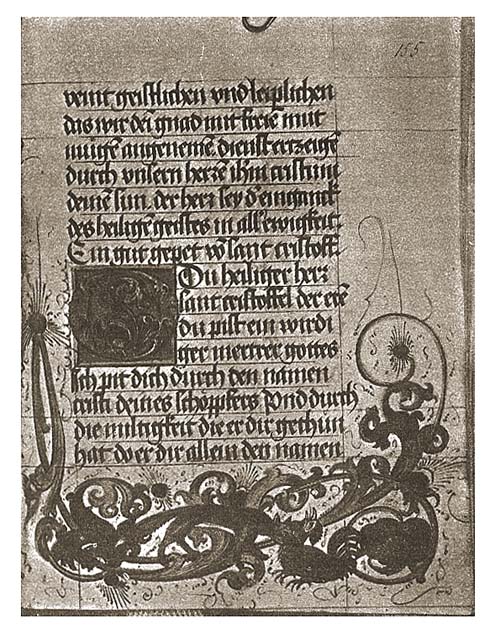 155
veint geistlichen vnd leiplichen
das wir dei gnad mit freie mut
müge angeneme dienst erzeige
durch vnsern herze ihm cristum
deine sun. der herz sey d' einganck
des heilige geistes in all' ewigkeit.
Ein gut gepet vo sant cristoff.
Du heiliger herz
sant cristoffel der ere
du pist ein wirdi
ger mertrer gottes
Ich pit dich durch den namen
cristi deines schöppfers Vnd durch
die miltigkeit die er dir gethun
hat do er dir allein den namen